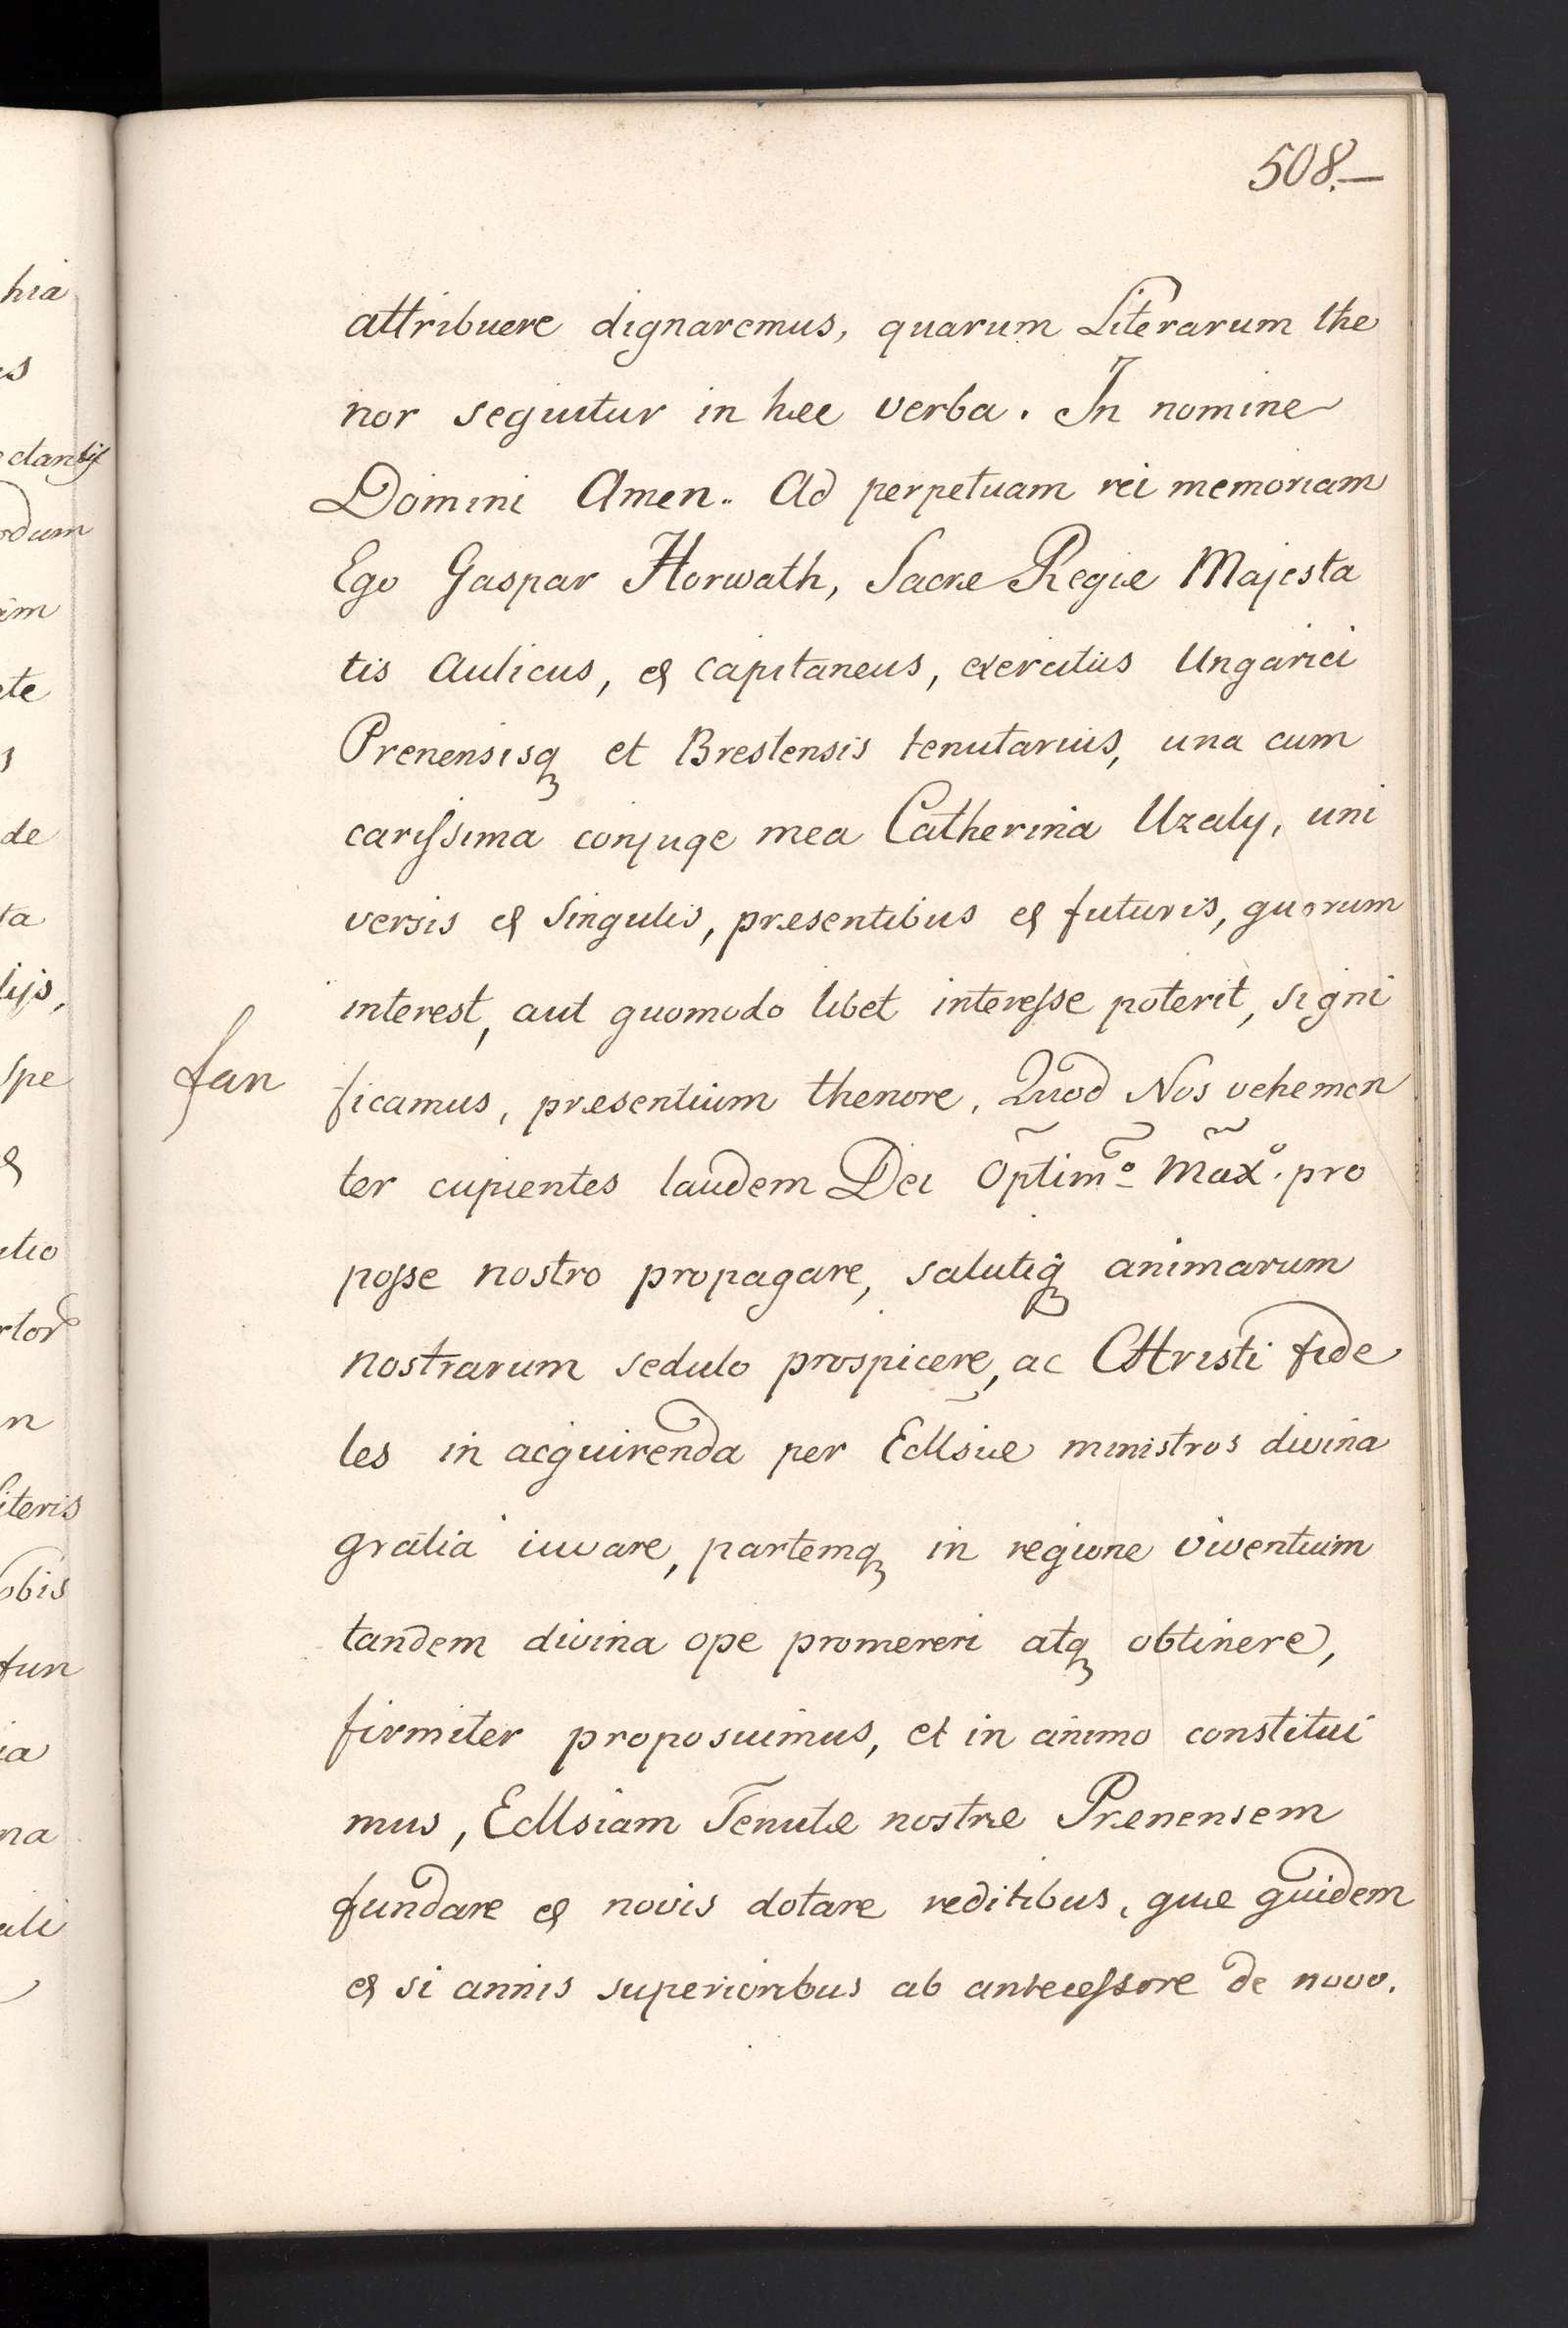 508.—
attribuere dignaremus, quarum Literarum the
nor sequitur in hæc verba. In nomine
Domini Amen.. Ad perpetuam rei memoriam
Ego Gaspar Horwath, Sacræ Regiæ Majesta
tis Aulicus, & capitaneus, exercitus Ungarici
Prenensisq et Brestensis tenutarius, una cum
carissima conjuge mea Catherina Uzaly, uni
versis & singulis, præsentibus & futuris, quorum
interest, aut quomodo libet interesse poterit, signi
fan
ficamus, præsentium thenore, Quod Nos vehemen
ter cupientes laudem Dei Optimº Maxº. pro
posse nostro propagare, salutiq animarum
nostrarum sedulo prospicere, ac CHristi fide
les in acquirenda per Ecllsiæ ministros divina
gratia iuvare, partemq in regione viventium
tandem divina ope promereri atq obtinere,
firmiter proposuimus, et in animo constitui
mus, Ecllsiam Tenutæ nostræ Prænensem
fundare & novis dotare reditibus, quæ quidem
& si annis superioribus ab antecessore de novo.
hia
es
dantis
odum
im
ete
s
de
ta
lijs,
spe
&
itio
rtor
n
literis
obis
fun
ia
na
uli